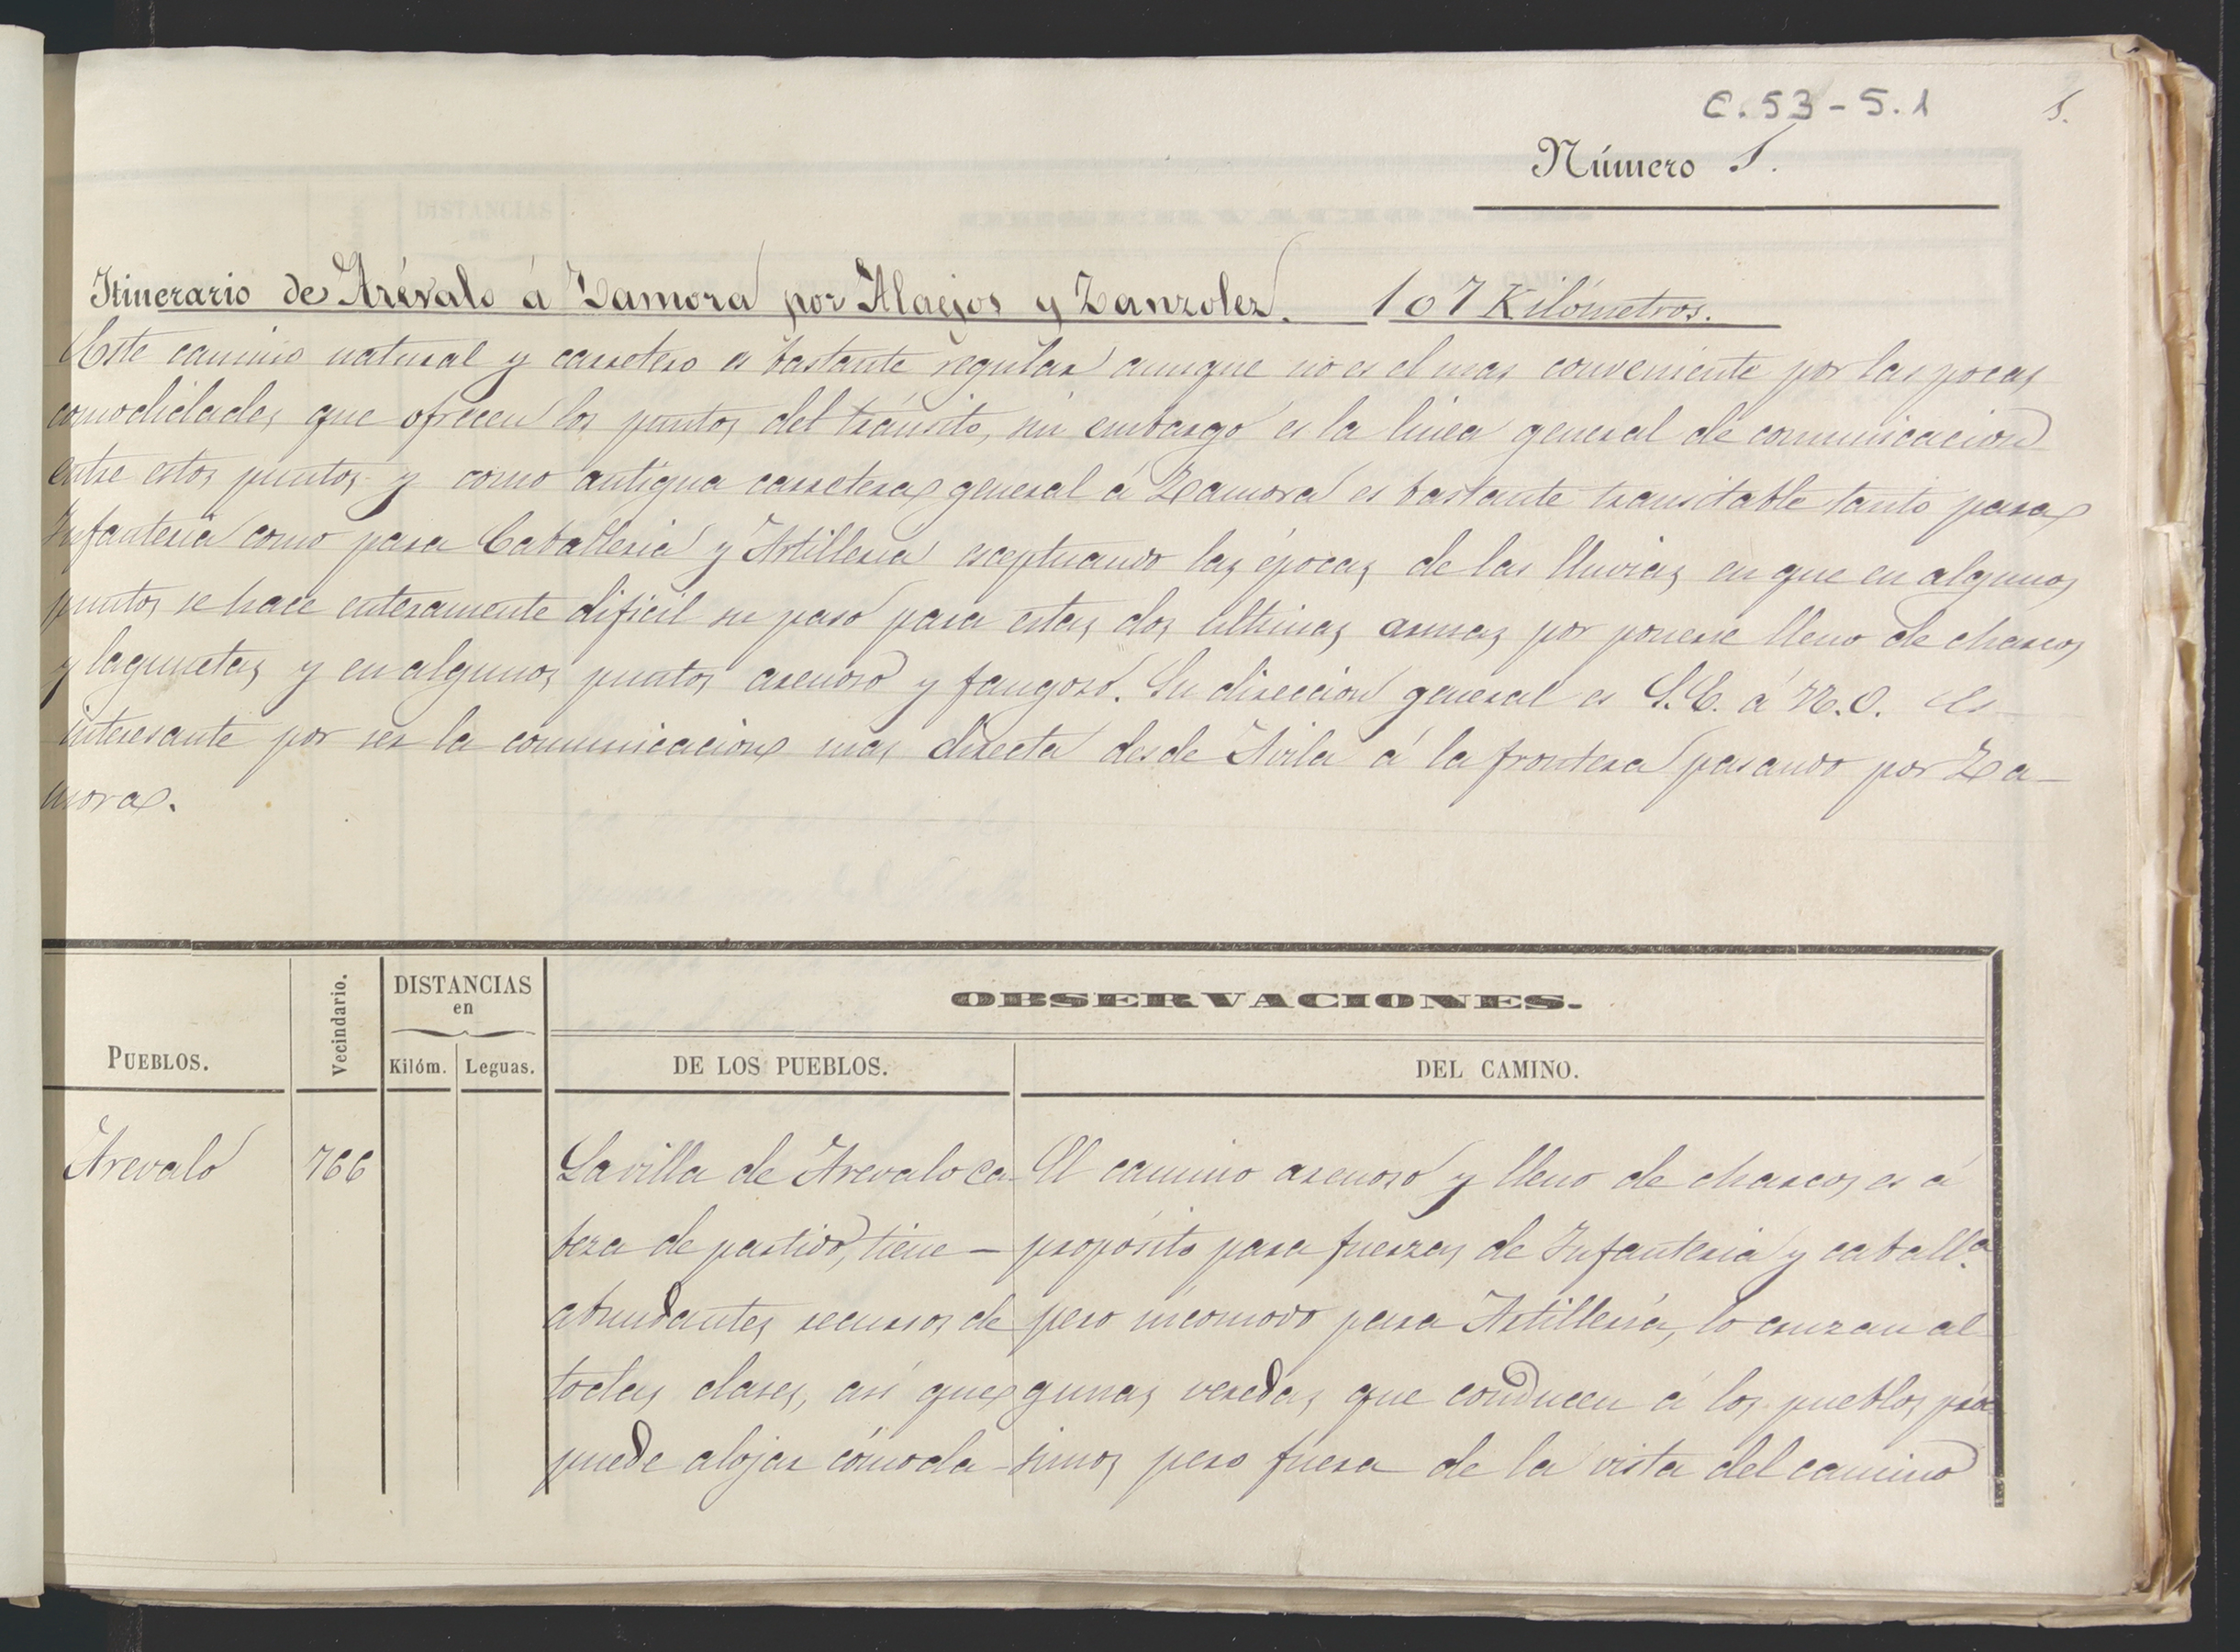 C.53-5.1
1.
Número 1.
Itinerario de Arévalo á Zamora por Alaejos y Zanzoles. 107 Kilómetros.
Este camino natural y carretero es bastante regular aunque no es el mas conveniente por las pocas
comodidades que ofrecen los puntos del tránsito, sin embargo es la linea general de comunicacion
entre estos puntos y como antigua carretera general á Zamora es bastante transitable tanto para
Infanteria como para Caballeria y Artilleria esceptuando las épocas de las lluvias en que en algunos
puntos se hace enteramente dificil su paso para estas dos ultimas armas por ponerse lleno de charcos
y lagunetas y en algunos puntos arenoso y fangoso. Su direccion general es S.E. á N.O. Es
interesante por ser la comunicacion mas directa desde Avila á la frontera pasando por Za-
mora.
PUEBLOS.
Vecindario.
DISTANCIAS
en
Kilóm.
Leguas.
OBSERVACIONES.
DE LOS PUEBLOS.
DEL CAMINO.
Arevalo
766
La villa de Arevalo ca-
beza de partido, tiene —
abundantes recursos de
todas clases, asi que
puede alojar cómoda-
El camino arenoso y lleno de charcos es á
propósito para fuerzas de Infanteria y caball.ª
pero incomodo para Artilleria, lo cruzan al-
gunas veredas que conducen á los pueblos proc-
simos pero fuera de la vista del camino